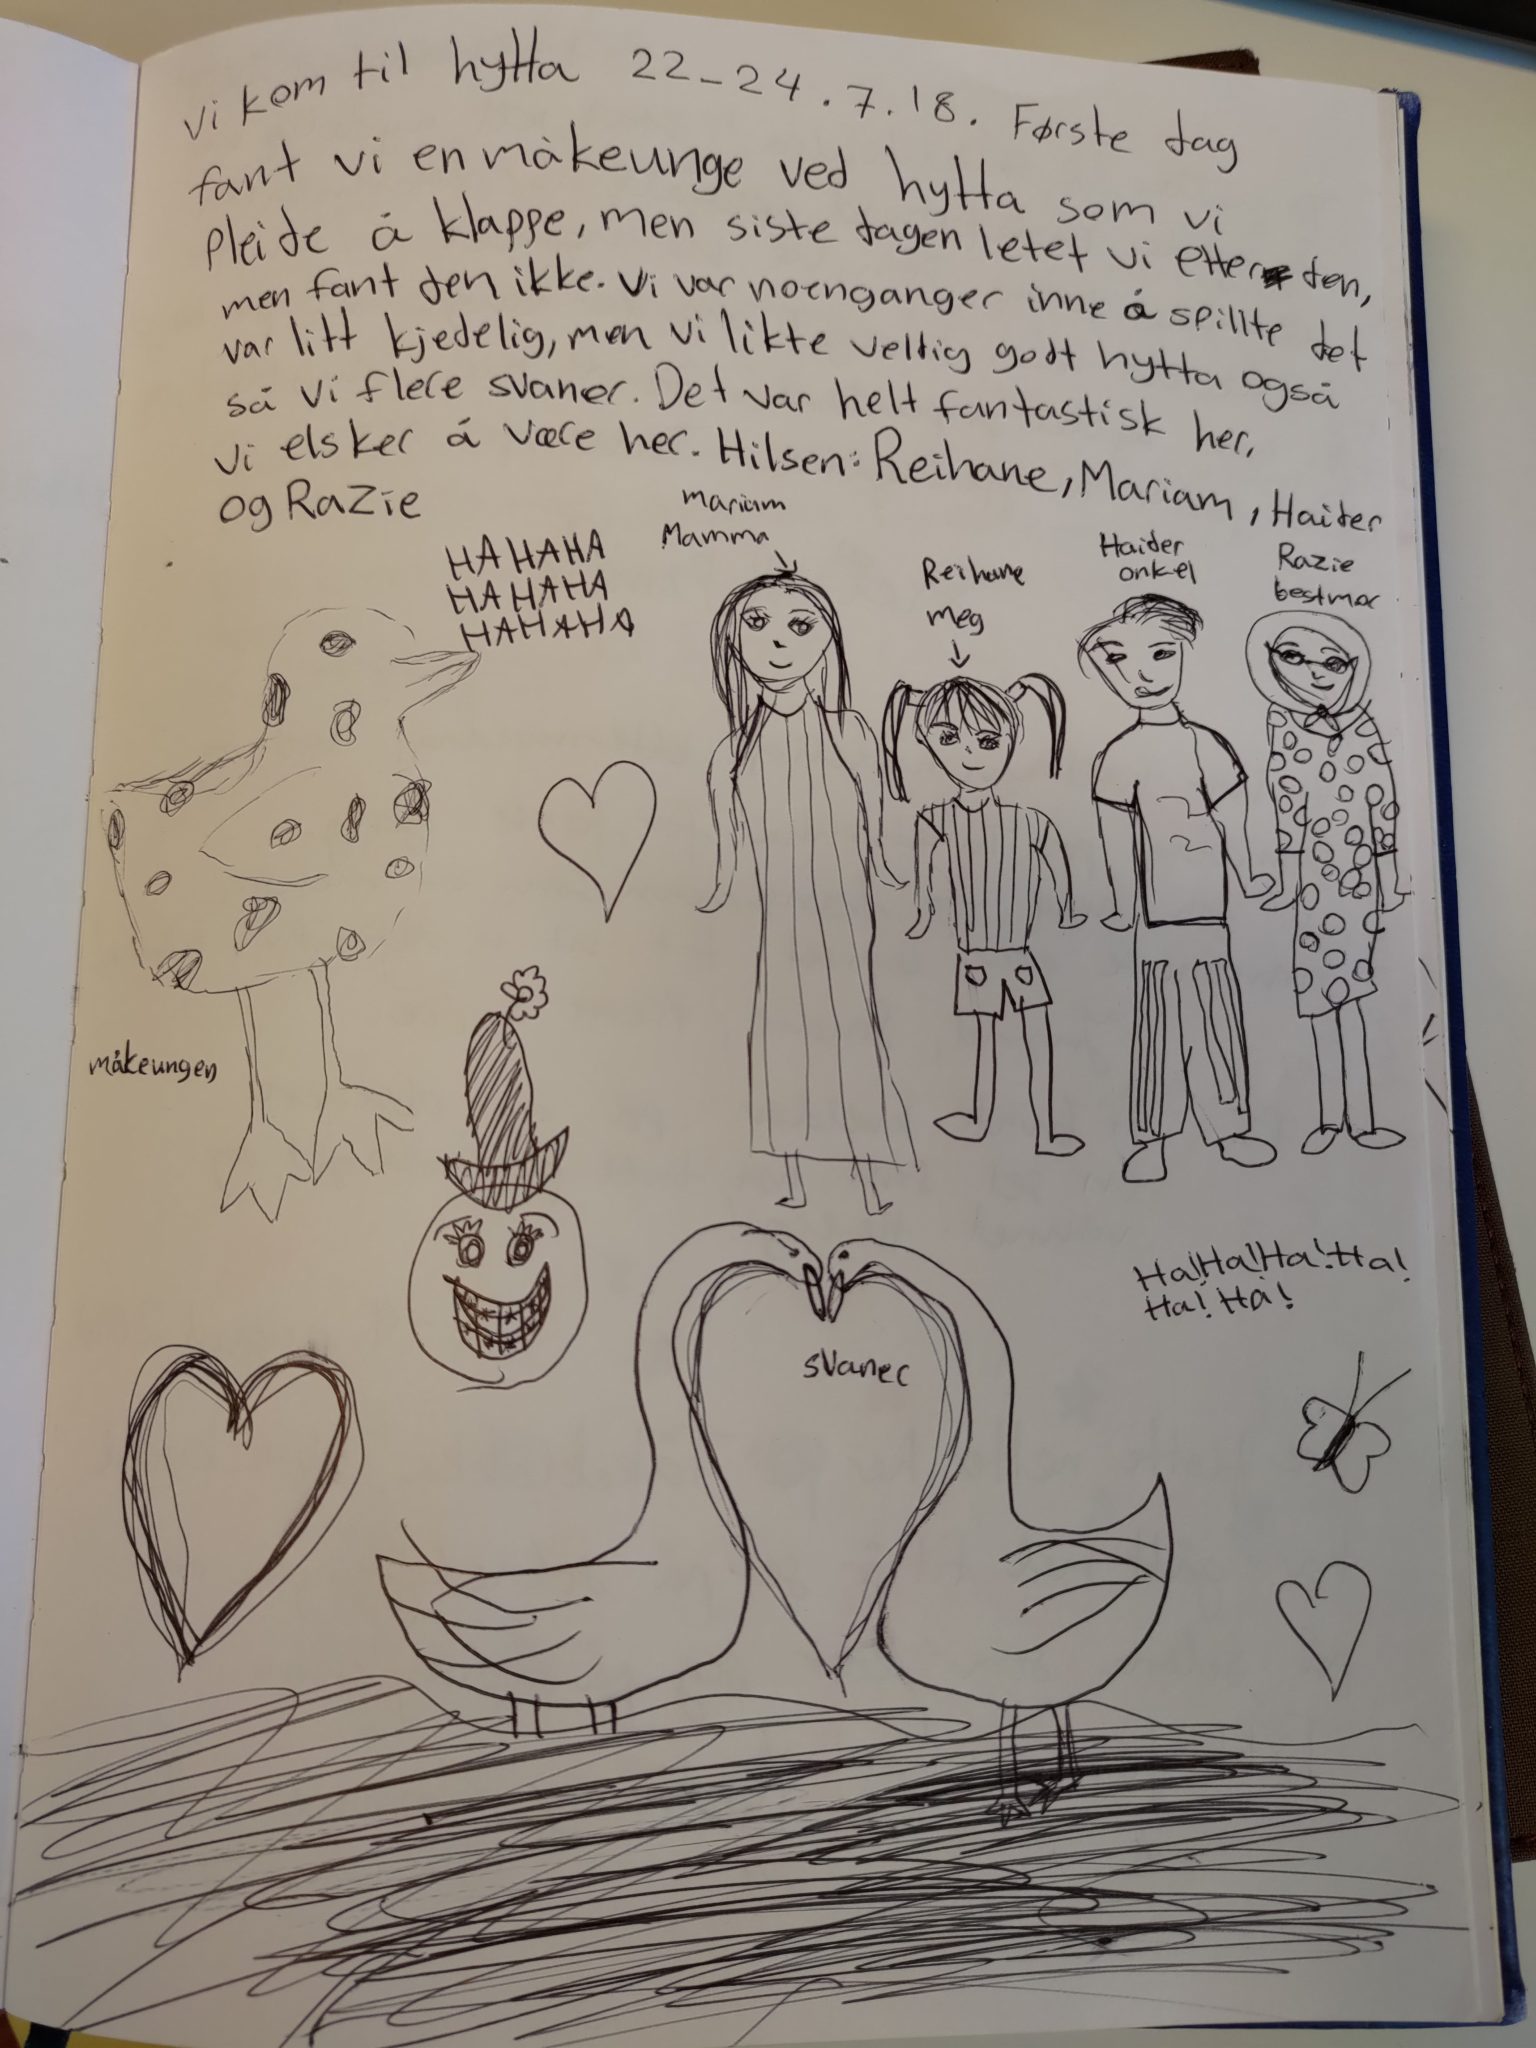 vi kom til hytta 22-24.7.18. Første dag
fant vi en måkeunge ved hytta som vi
pleide å klappe, men siste dagen letet vi etter den,
men fant den ikke. Vi var noenganger inne å spillte det
var litt kjedelig, men vi likte veldig godt hytta også
så vi flere svaner. Det var helt fantastisk her,
vi elsker å være her. Hilsen: Reihane, Mariam, Haider
og Razie
HAHAHA
HAHAHA
HAHAHA
mariam
Mamma
Reihane
meg
Haider
onkel
Razie
bestmor
måkeungen
svaner
Ha!Ha!Ha!Ha!
Ha! Ha!